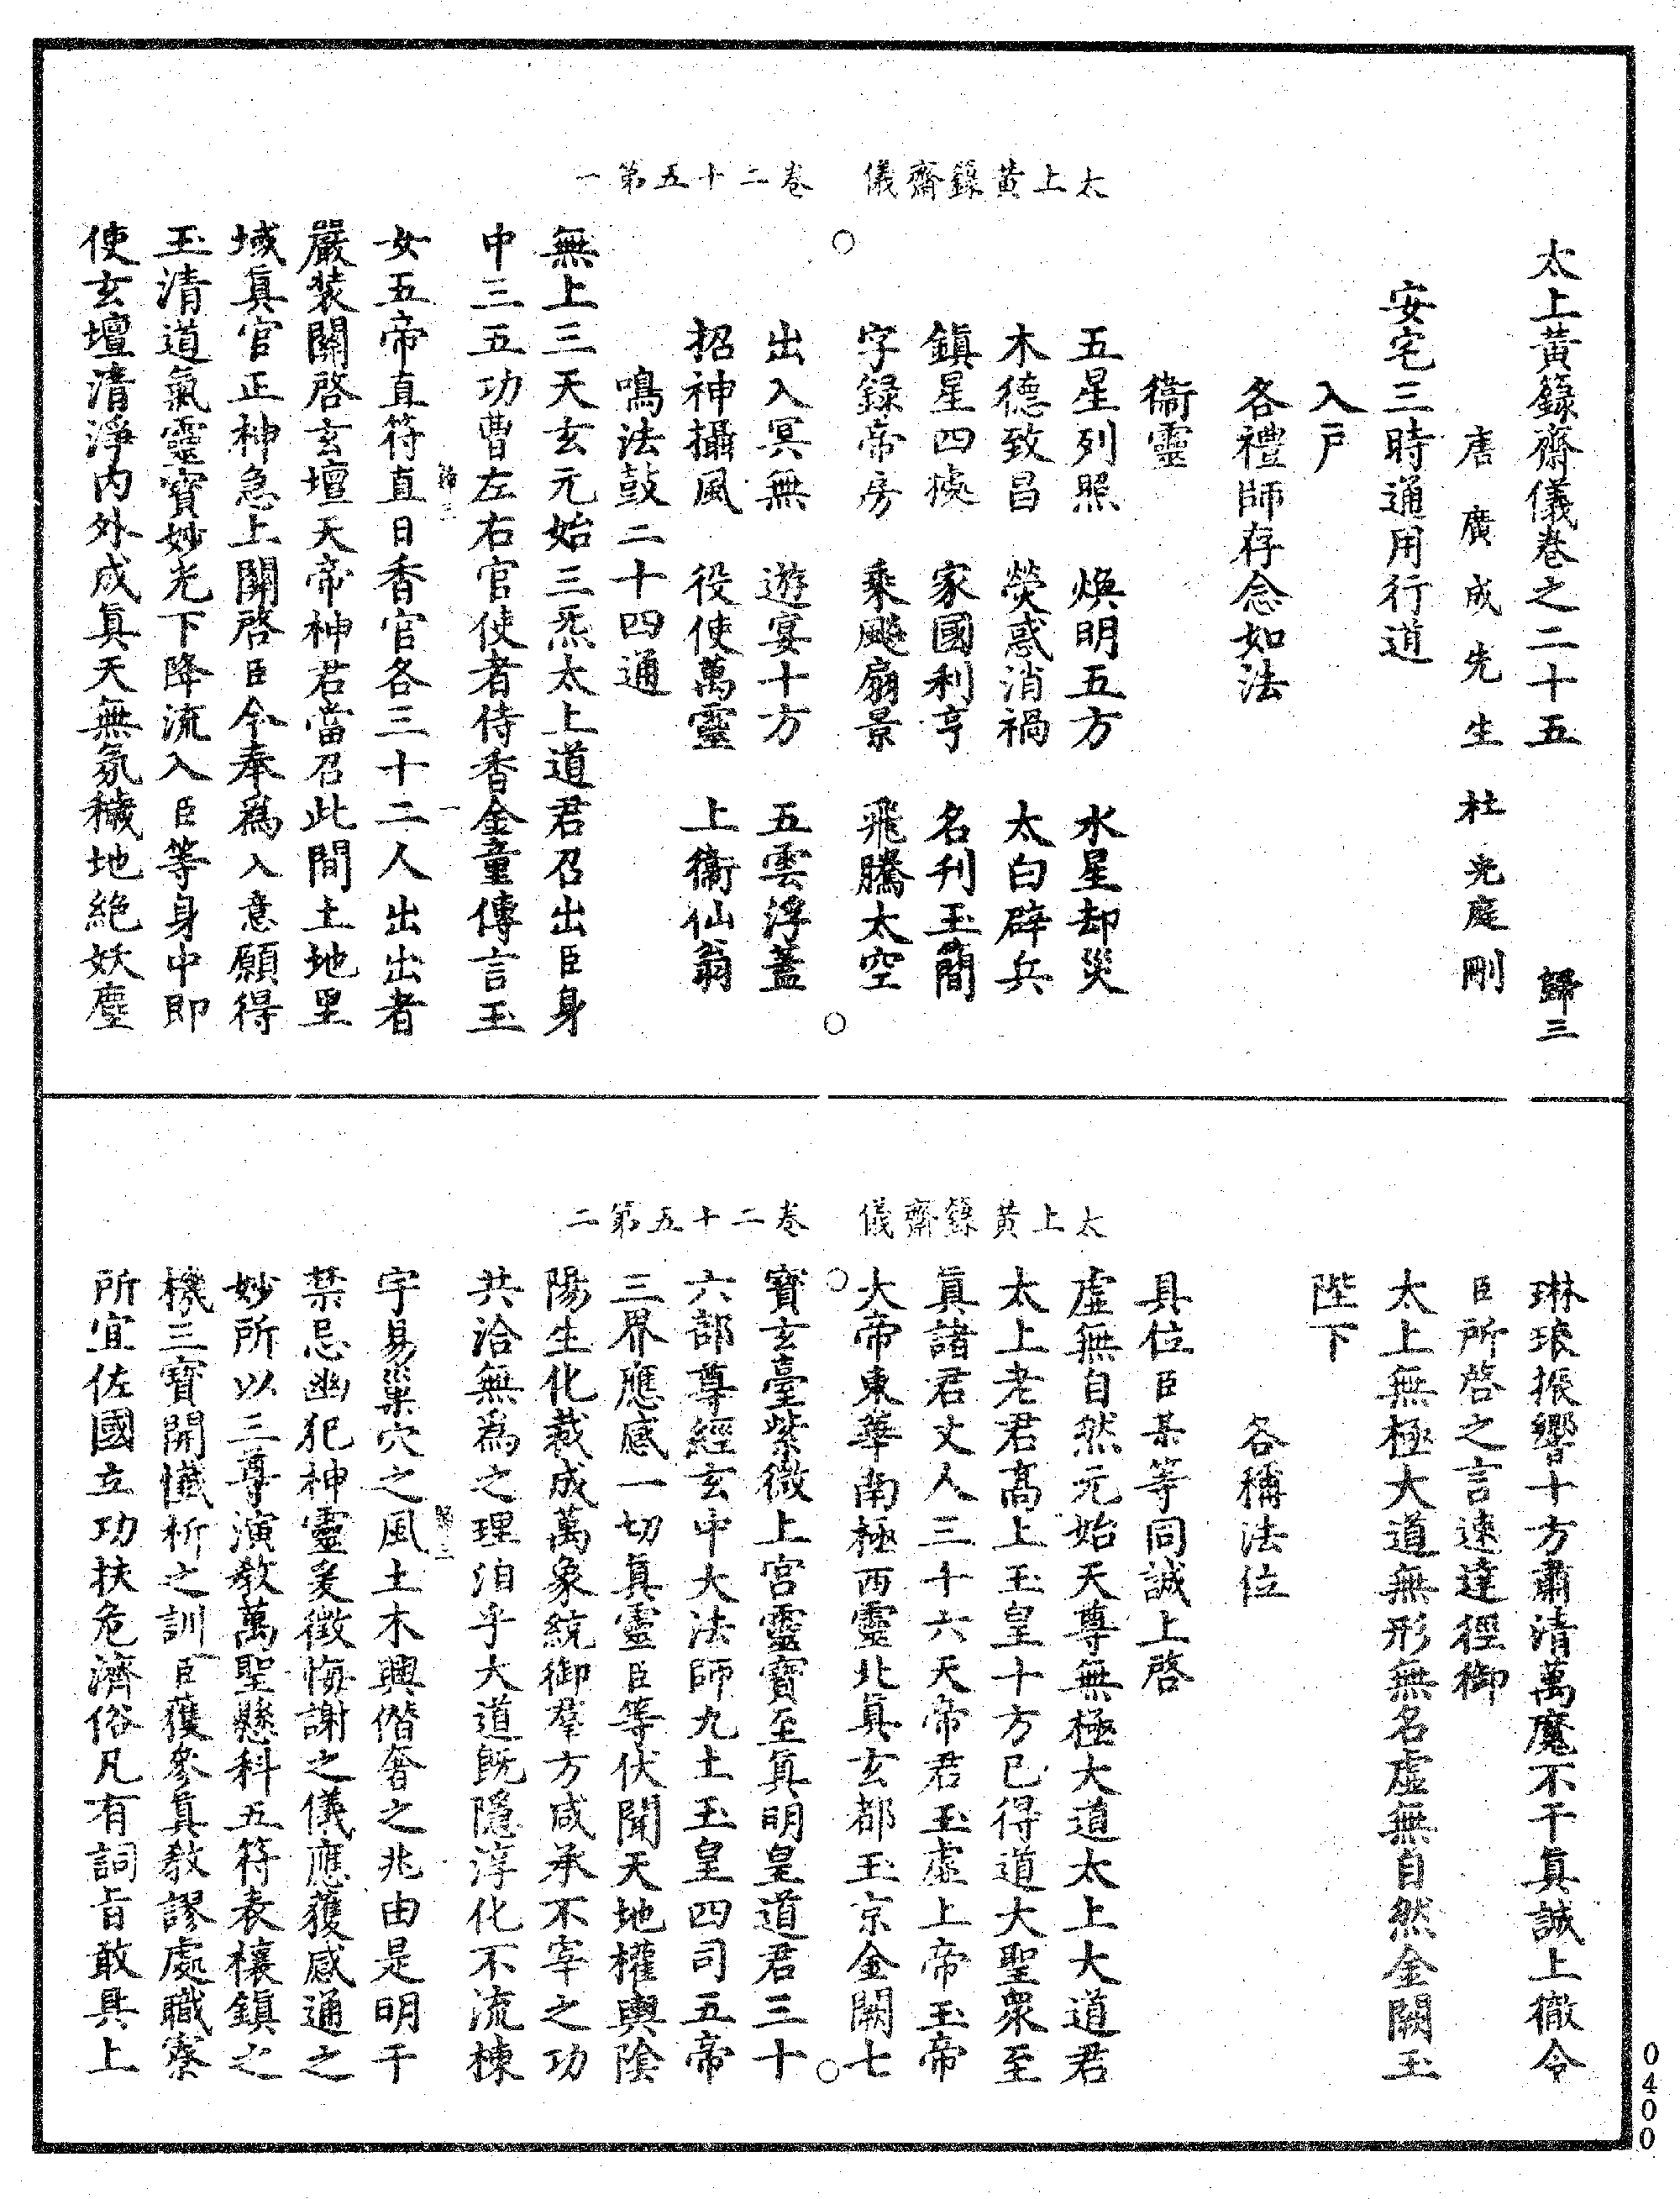 太上黃籙齋儀卷二十五第一
太上黃籙齋儀卷之二十五 歸三
唐廣成先生杜光庭刪
安宅三時通用行道
入戶
各禮師存念如法
衞靈
五星列照 煥明五方 水星却災
木德致昌 熒惑消禍 太白辟兵
鎮星四據 家國利亨 名刊玉簡
字錄帝房 乘飈扇景 飛騰太空
出入冥無 遊宴十方 五雲浮蓋
招神攝風 役使萬靈 上衞仙翁
鳴法鼓二十四通
無上三天玄元始三炁太上道君召出臣身
中三五功曹左右官使者侍香金童傳言玉
女五帝直符直日香官各三十二人出出者
嚴裝關啓玄壇天帝神君當召此間土地里
域眞官正神急上關啓臣今奉爲入意願得
玉清道氣靈寶妙光下降流入臣等身中即
使玄壇清淨內外成眞天無氛穢地絕妖塵
太上黃籙齋儀卷二十五第二
琳琅振響十方肅清萬魔不干眞誠上徹令
臣所啓之言速達徑御
太上無極大道無形無名虛無自然金闕玉
陛下
各稱法位
具位臣某等同誠上啓
虛無自然元始天尊無極大道太上大道君
太上老君高上玉皇十方已得道大聖衆至
眞諸君丈人三十六天帝君玉虛上帝玉帝
大帝東華南極西靈北眞玄都玉京金闕七
寶玄臺紫微上宮靈寶至眞明皇道君三十
六部尊經玄中大法師九土玉皇四司五帝
三界應感一切眞靈臣等伏聞天地權輿陰
陽生化裁成萬象統御羣方咸承不宰之功
共洽無爲之理洎乎大道旣隱淳化不流棟
宇易巢穴之風土木興僭奢之兆由是明干
禁忌幽犯神靈爰徵悔謝之儀應獲感通之
妙所以三尊演教萬聖懸科五符表禳鎮之
機三寶開懺祈之訓臣獲參眞教謬處職寮
所宜佐國立功扶危濟俗凡有詞旨敢具上
0400